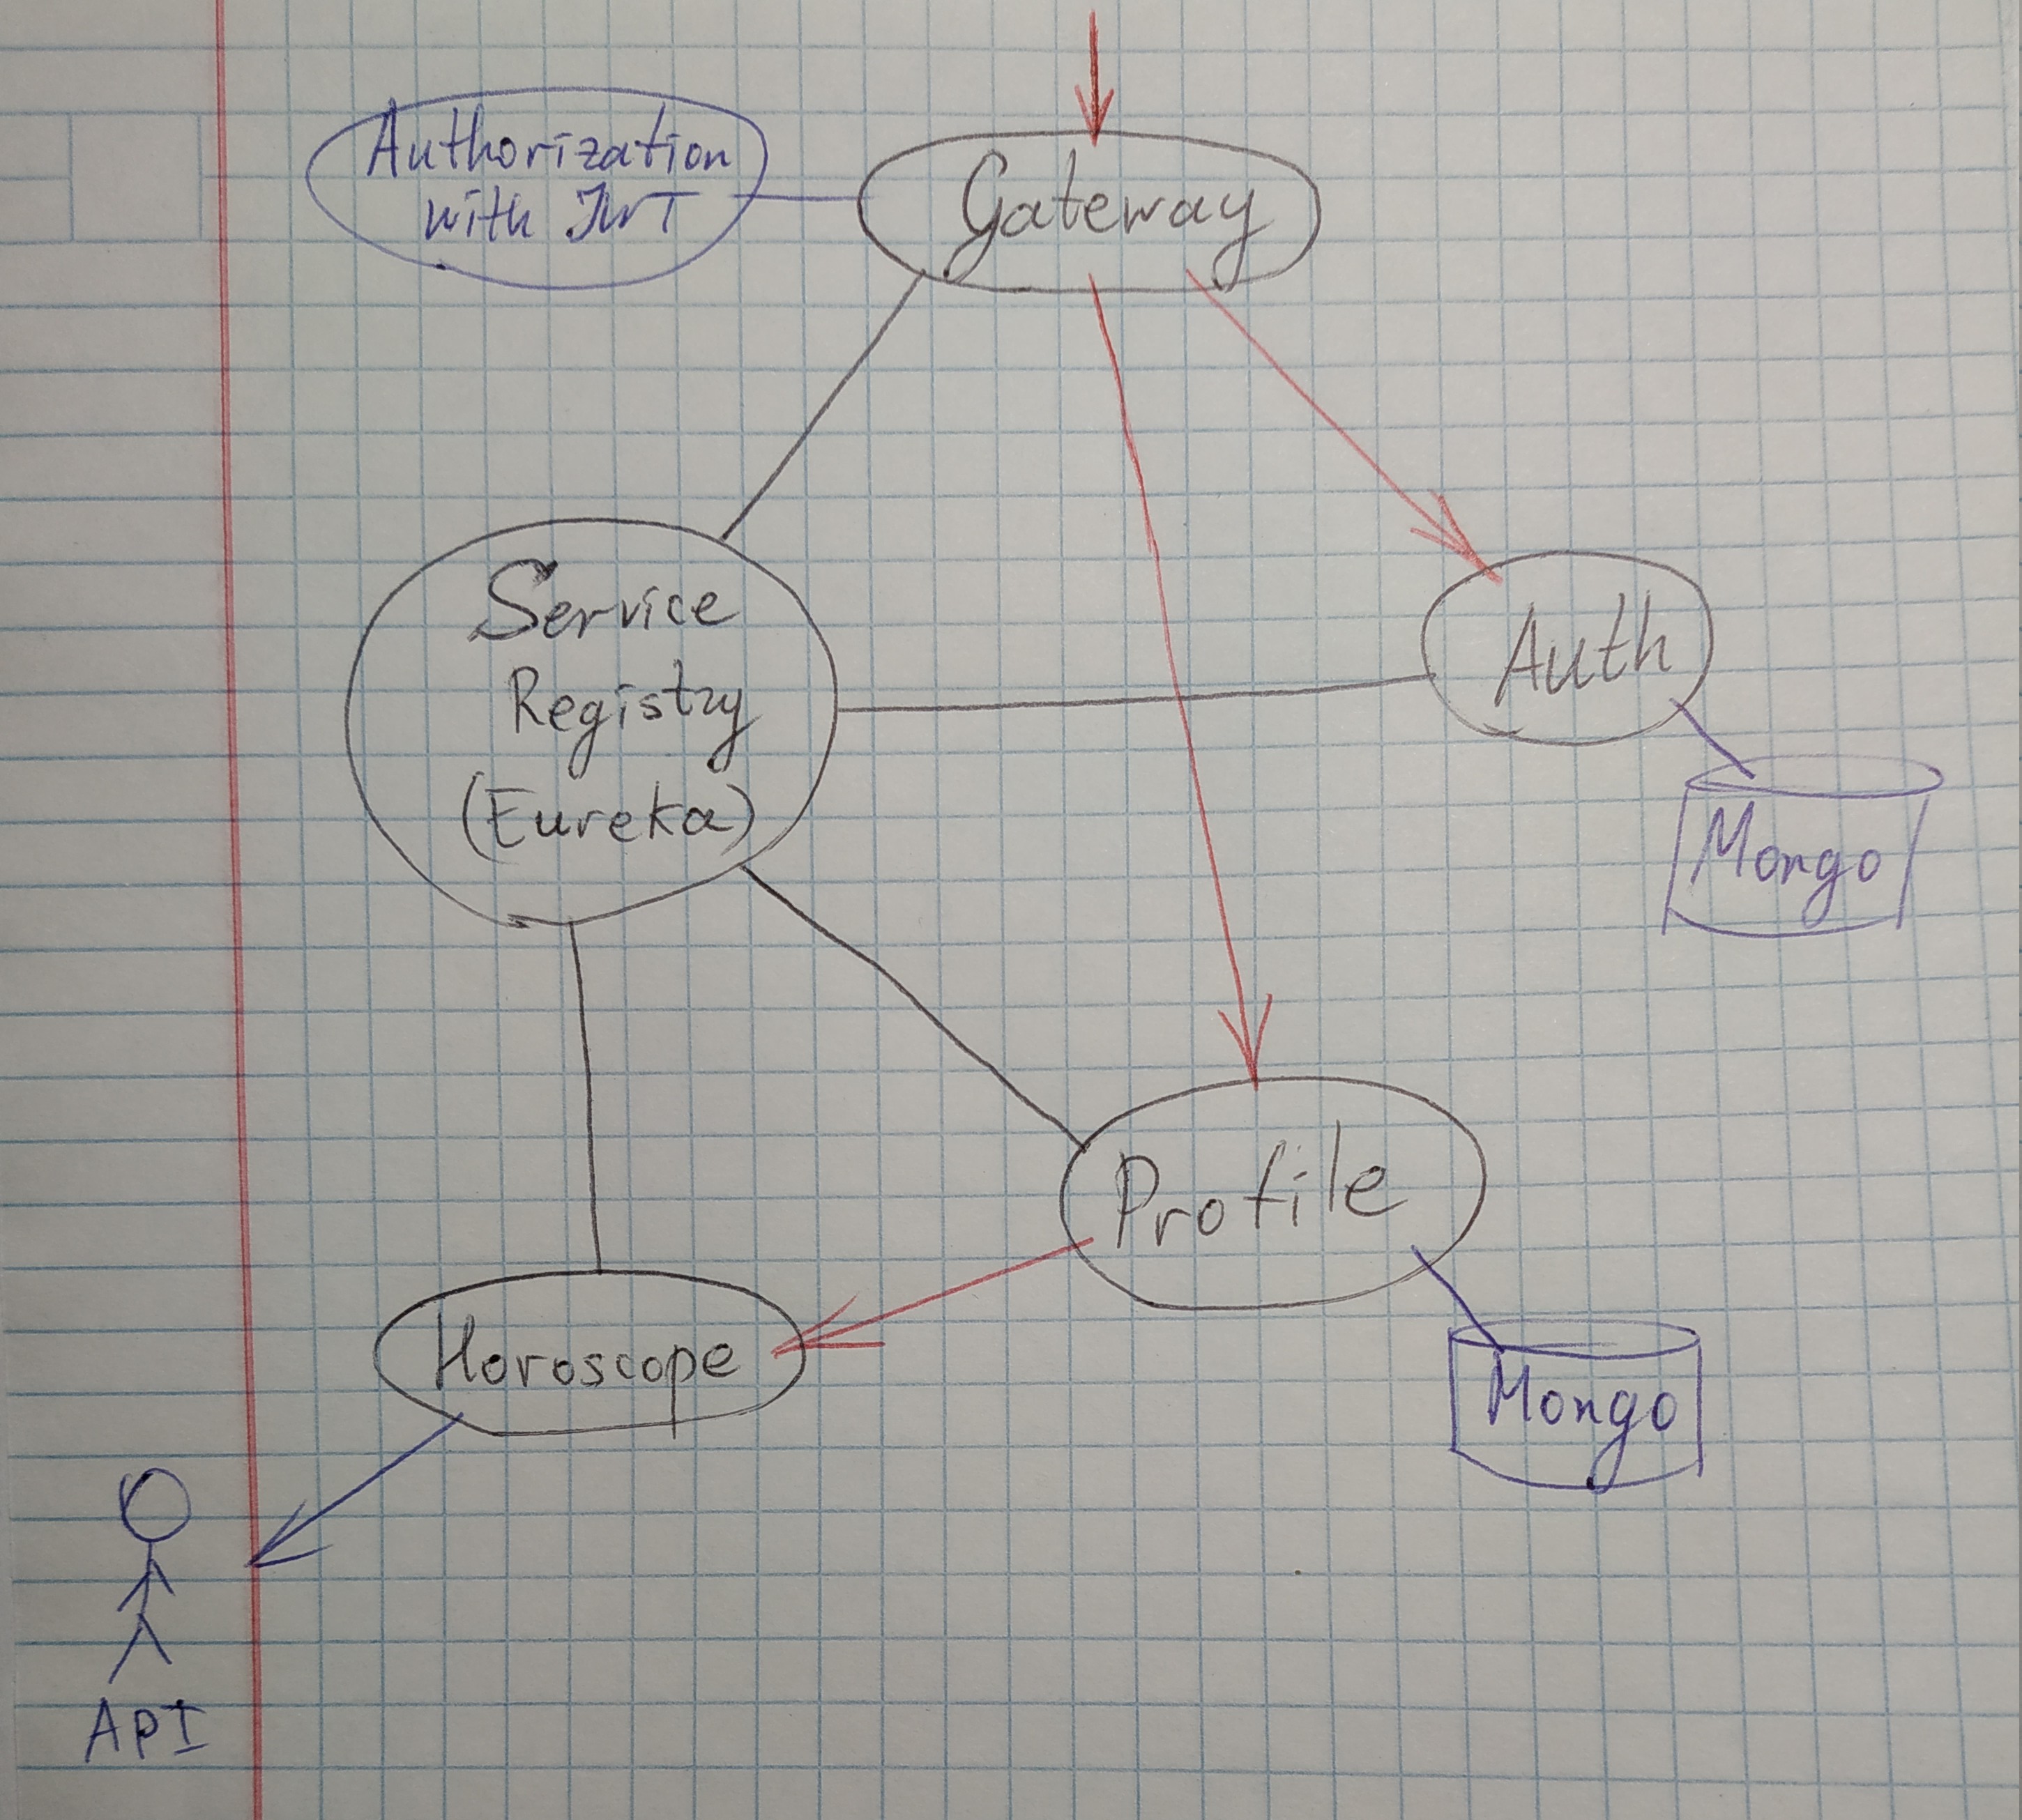 Authorization
with JWT
Gateway
Service
Registry
(Eureka)
Auth
Mongo
Profile
Horoscope
Mongo
API